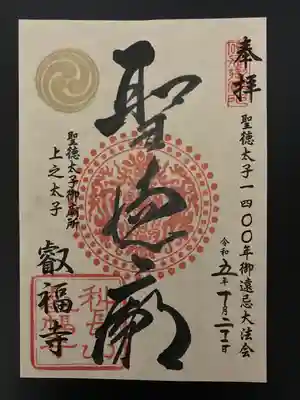 奉拝
聖徳太子一四〇〇年御遠忌大法会
令和五年十月二十一日
聖徳廟
聖徳太子御廟所
上之太子
叡福寺